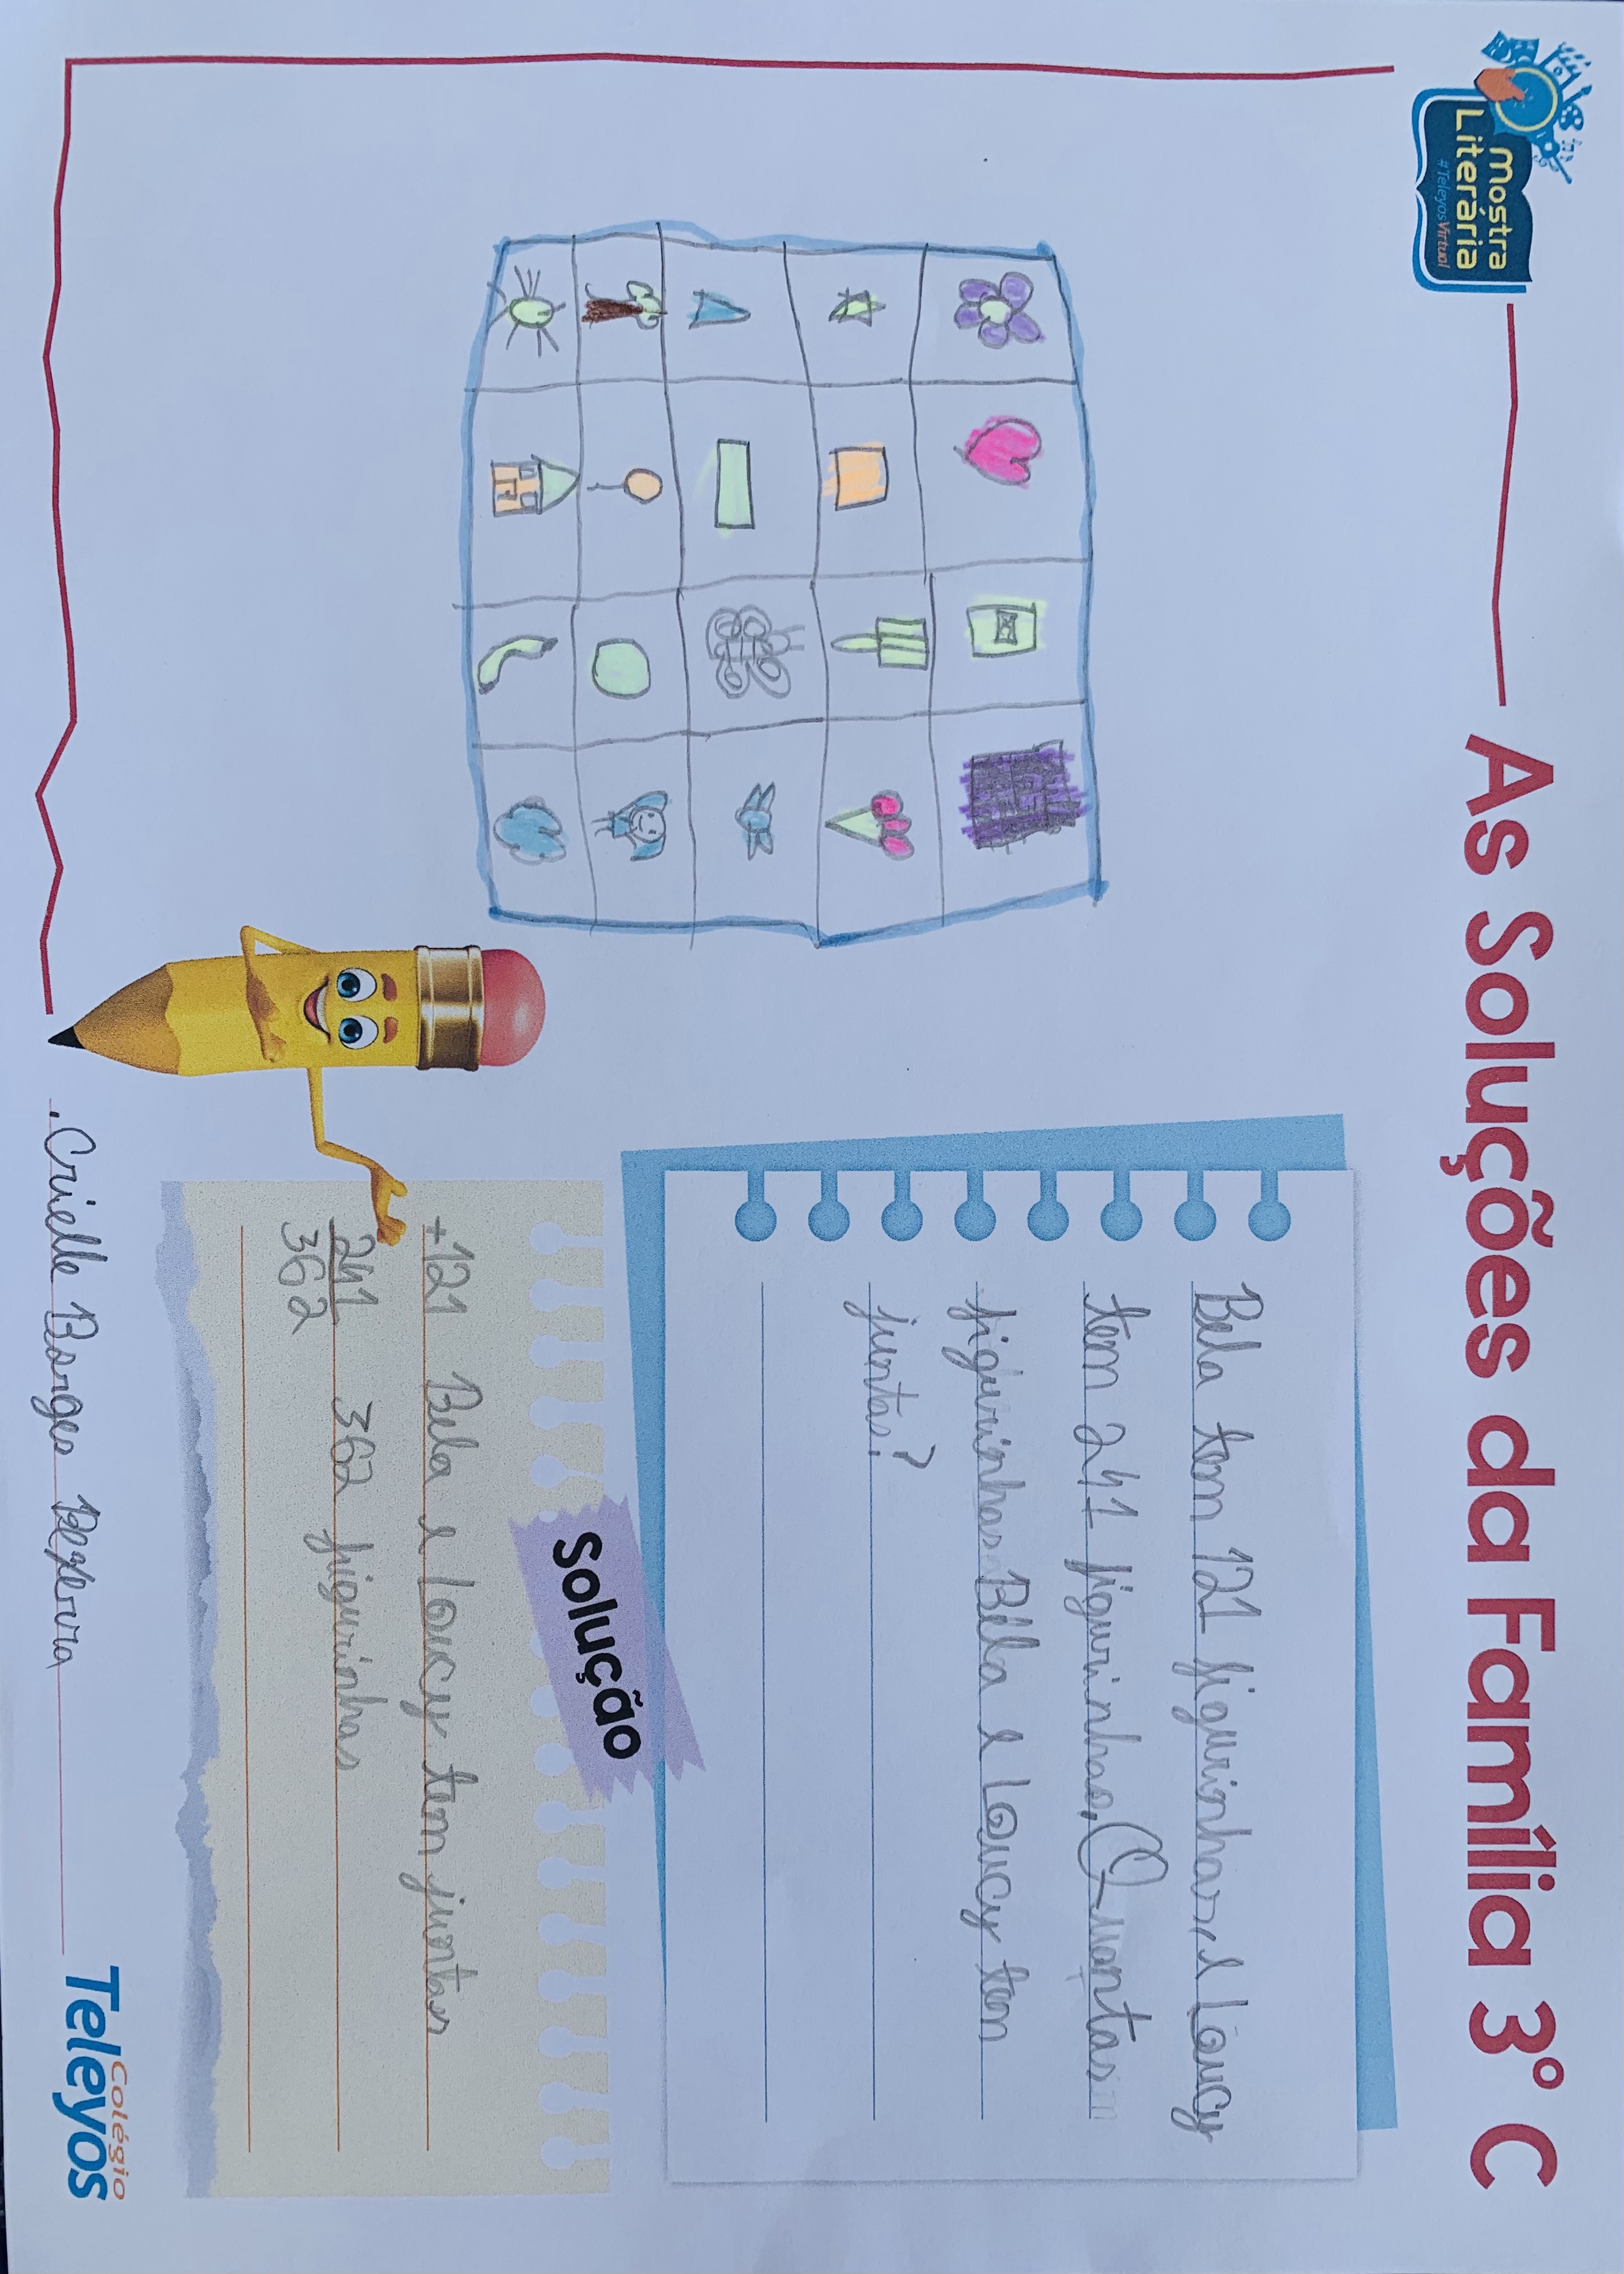 Mostra
Literária
#TeleyosVirtual
As Soluções da Família 3º C
Bela tem 121 figurinhas, e Laucy
tem 241 figurinhas. Quantas
figurinhas Bela e Laucy tem
juntas?
Solução
+121 Bela e Laucy tem juntas
241 362 figurinhas
362
Crielle Borges Bezerra
Colégio
Teleyos